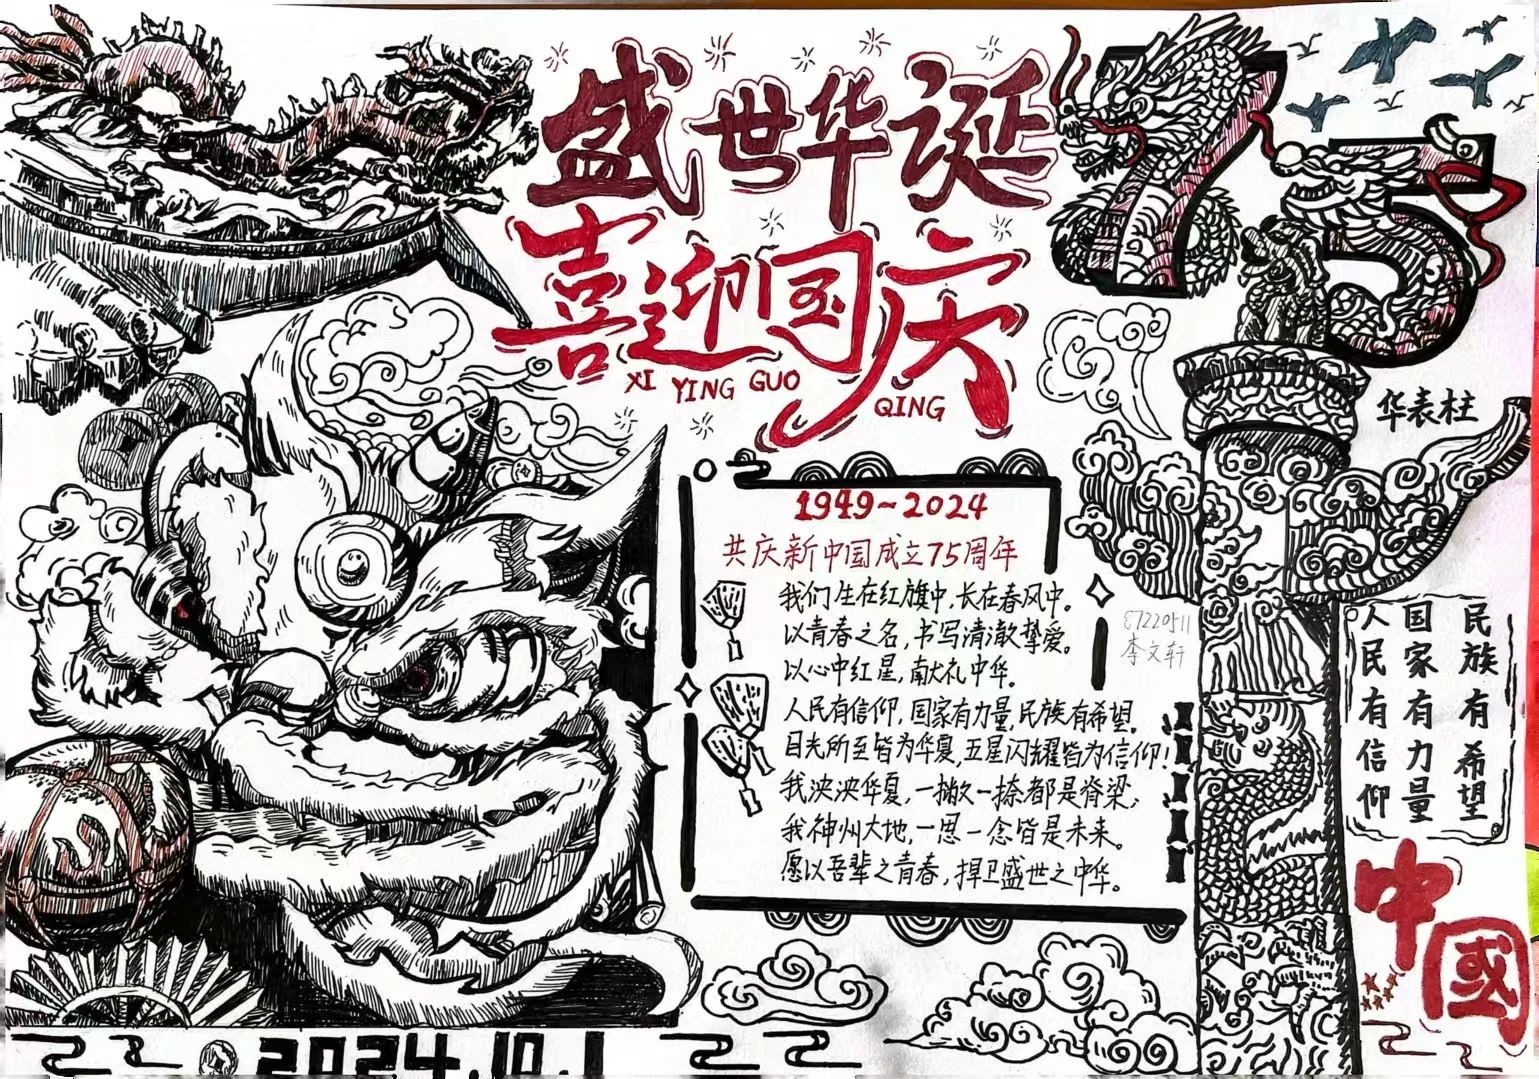 盛世华诞
喜迎国庆
XI YING GUO QING
75
华表柱
1949~2024
共庆新中国成立75周年
我们生在红旗中,长在春风中。
以青春之名,书写清澈挚爱。
以心中红星,献礼中华。
人民有信仰,国家有力量,民族有希望。
目光所至皆为华夏,五星闪耀皆为信仰!
我泱泱华夏,一撇一捺都是脊梁;
我神州大地,一思一念皆是未来。
愿以吾辈之青春,捍卫盛世之中华。
87220511
李文轩
民族有希望
国家有力量
人民有信仰
中國
2024.10.1